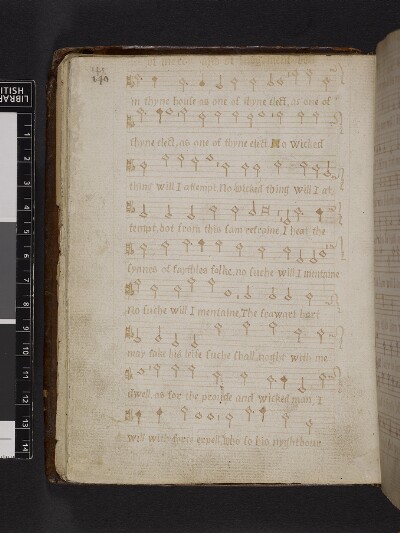 141
of mercy and of Judgment both
in thyne house as one of thyne elect, as one of
thyne elect, as one of thyne elect. No wicked
thing will I attempt, No wicked thing will I at,
tempt, but from this same refraine. I heat the
synnes of faythles folke, no suche will I mentaine
No suche will I mentaine, The frawart hart
may take his leife suche shall, nought with me
dwell, as for the proude and wicked man, I
will with force expell. Who so his nyghtboure
LIBRARIES
1
2
3
4
5
6
7
8
9
10
11
12
13
14